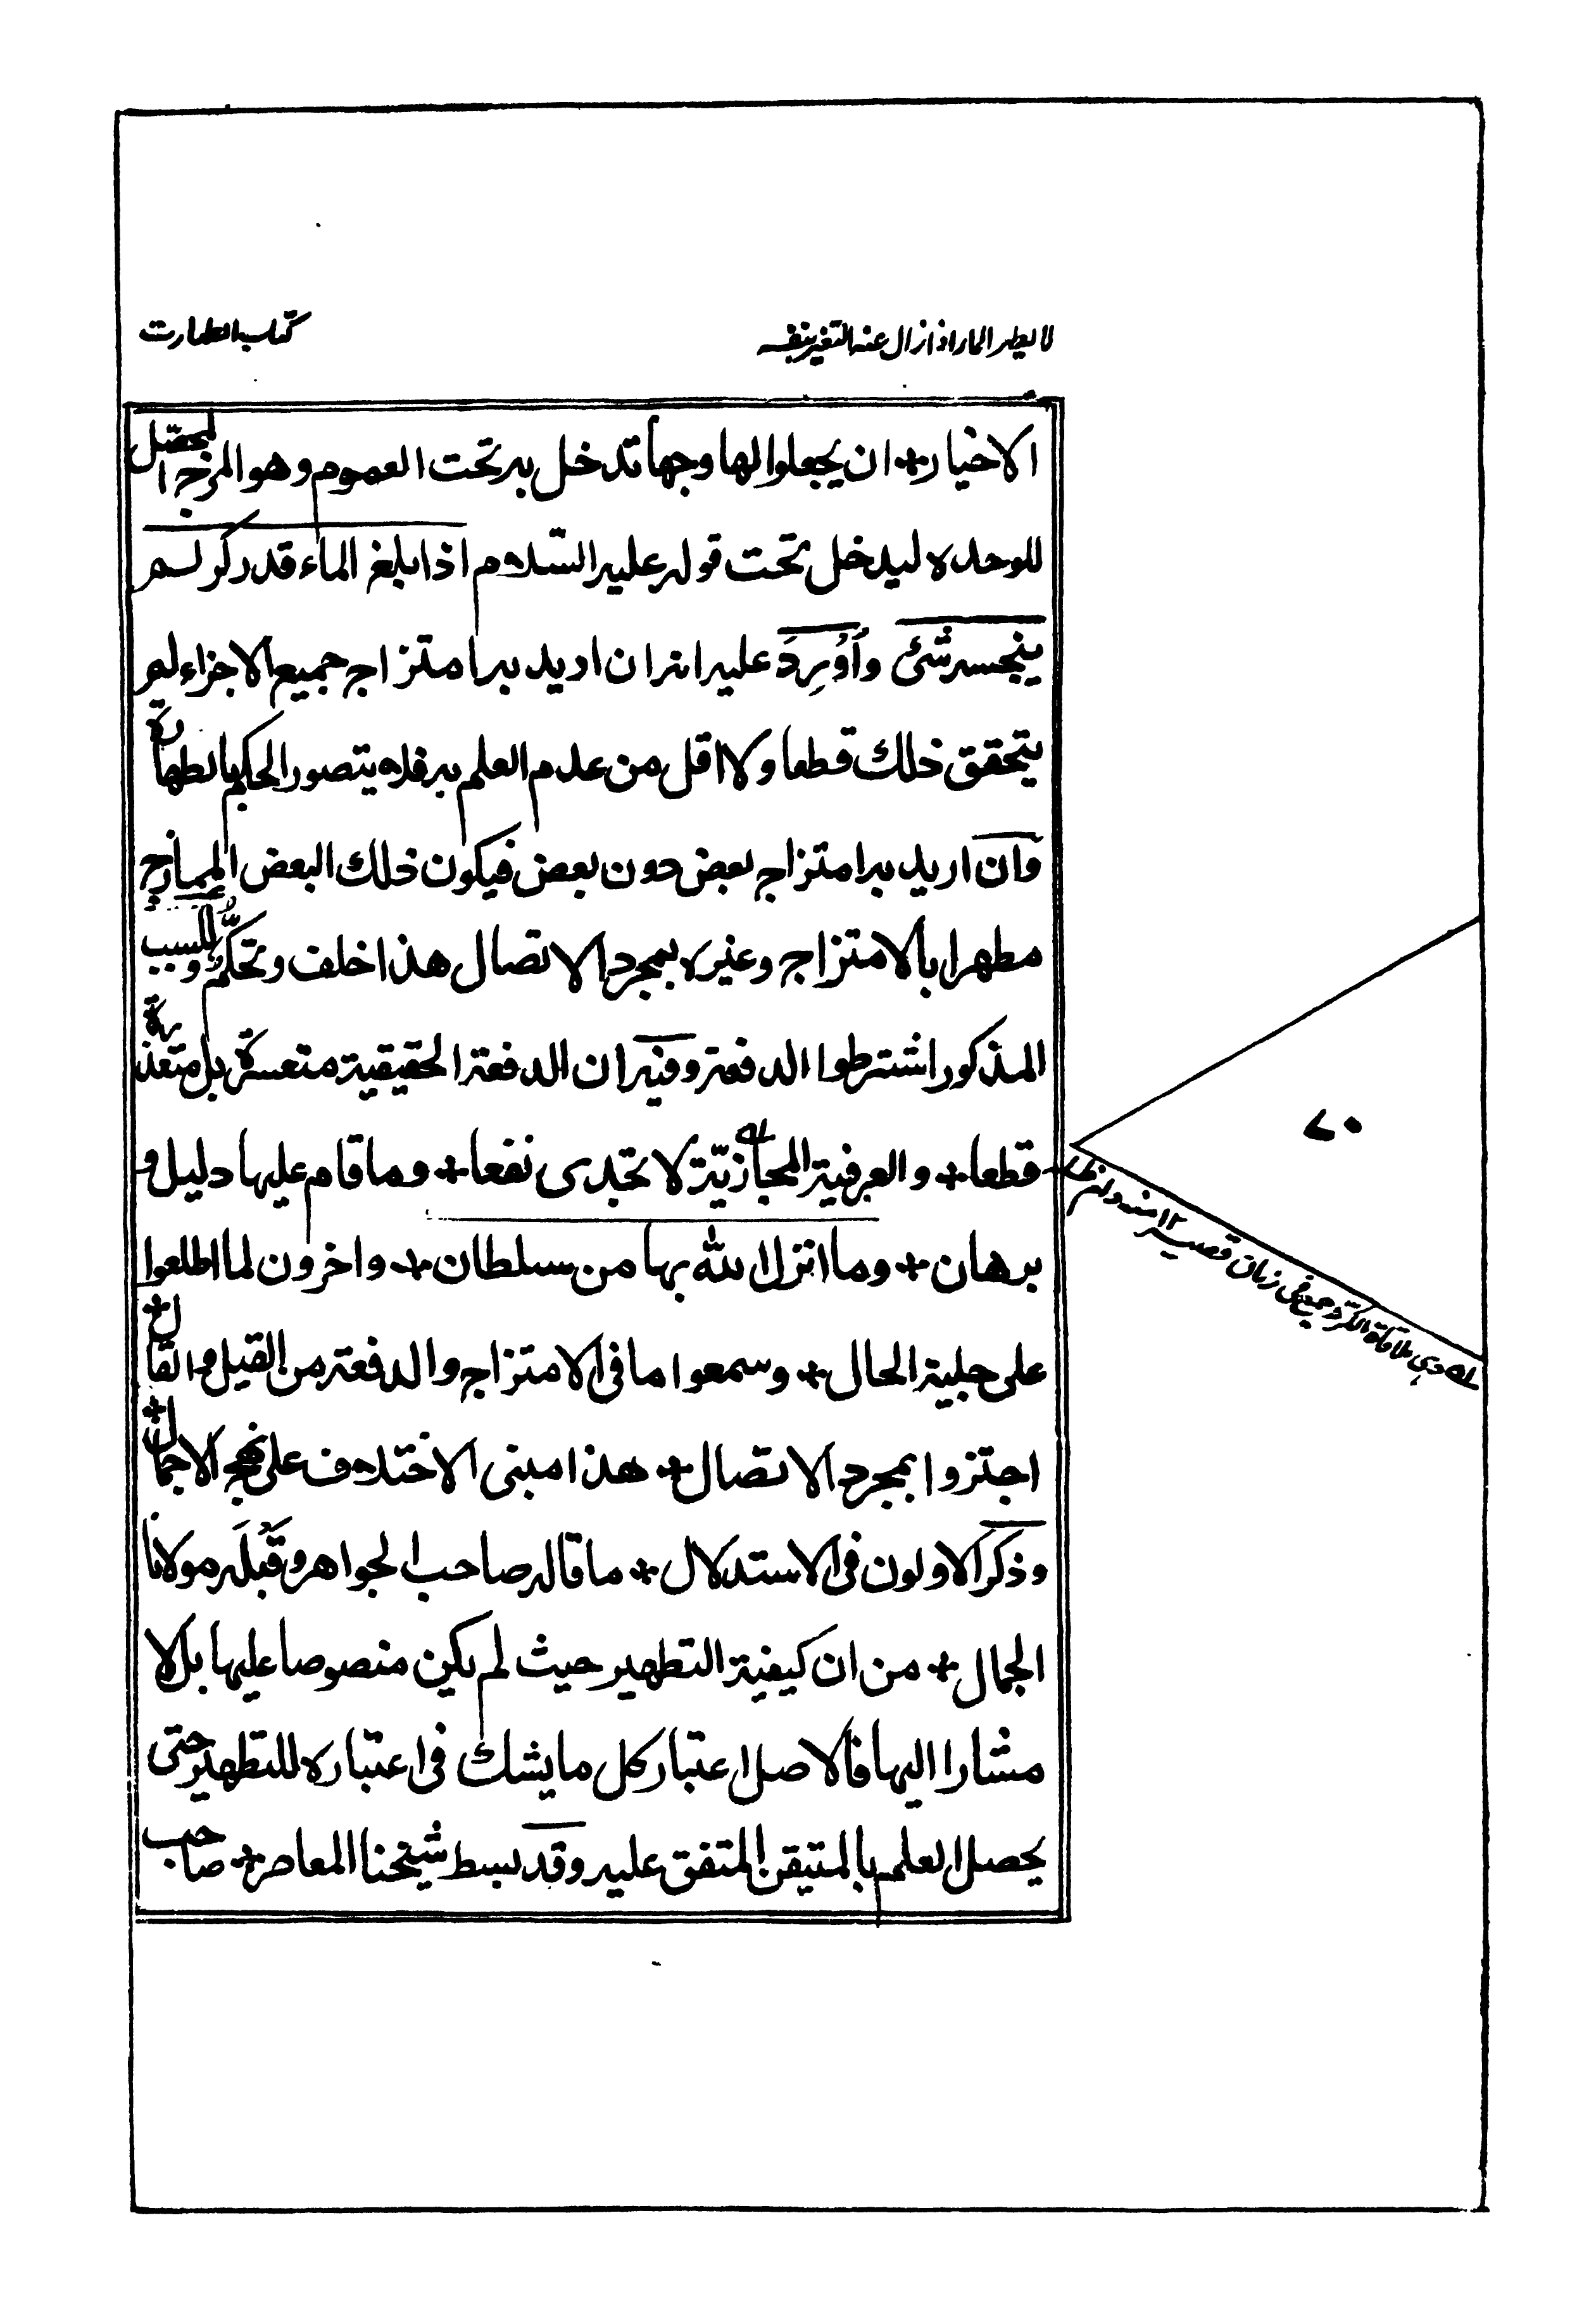 لا يطهر الماء اذا زال عنه التغير بنفسه
كتاب الطهارت
الاخيار + ان يجعلوا لها وجها تدخل به تحت العموم وهو المزج المحصّل
للوحدة ليدخل تحت قوله عليه السّلام اذا بلغ الماء قدر كر لم
ينجسه شئ وَاُورِدَ عليه انه ان اريد به امتزاج جميع الاجزاء لم
يتحقق ذلك قطعا ولا اقل من عدم العلم به فلا يتصور الحكم بالطهارة
وان اريد به امتزاج بعض دون بعض فيكون ذلك البعض الممازج
مطهرا بالامتزاج وغيره بمجرد الاتصال هذا خلف وتحكّم وللسبب
المذكور اشترطوا الدفعة وفيه ان الدفعة الحقيقية متعسرة بل متعذرة
قطعا + والعرفية المجازيّة لا تجدى نفعا + وما قام عليها دليل و
برهان + وما انزل الله بها من سلطان + واخرون لما اطلعوا
على جلية الحال + وسمعوا ما فى الامتزاج والدفعة من القيل والقال +
اجتزوا بمجرد الاتصال + هذا مبنى الاختلاف على نهج الاجمال +
وذكر الاولون فى الاستدلال + ما قاله صاحب الجواهر وقَبْلَه مولانا
الجمال + من ان كيفية التطهير حيث لم يكن منصوصا عليها بل لا
مشارا اليها فالاصل اعتبار كل ما يشك فى اعتباره للتطهير حتى
يحصل العلم بالمتيقن المتفق عليه وقد بسط شيخنا المعاصر + صاحب
له وهى ملاقاة الكر جميع فى زمان قصير ١٢ منه
٧٠